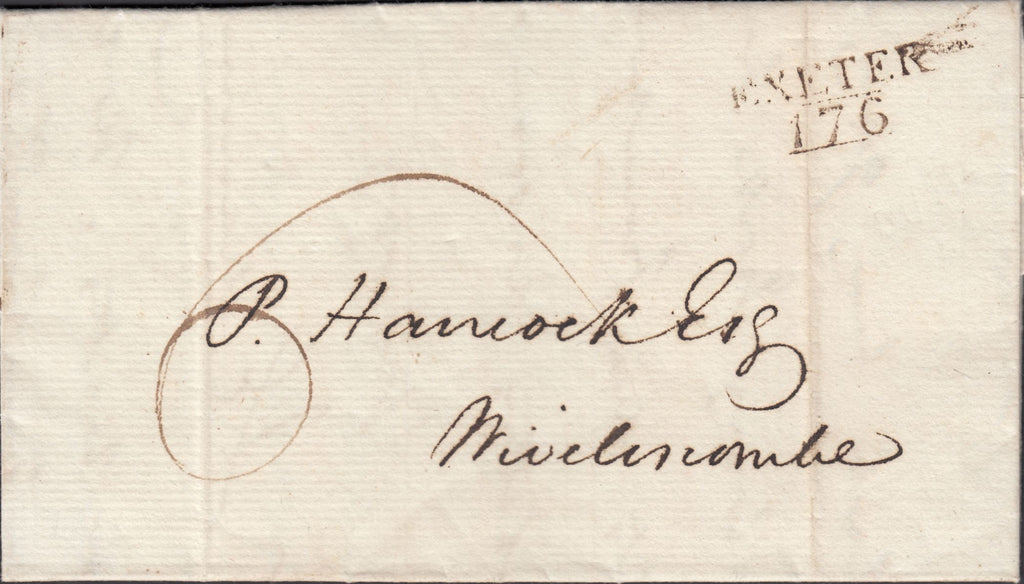 EXETER
176
P. Hancock Esq
Wiveliscombe